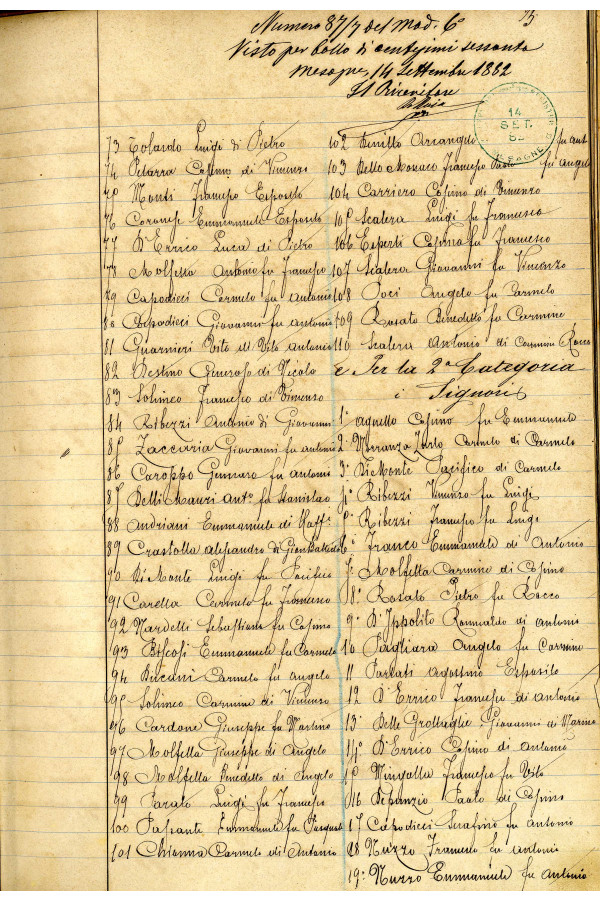 75
Numero 87/7 del Mod. 6°
Visto per bollo di centesimi sessanta
Mesagne, 14 Settembre 1882
Il Ricevitore
14
SET.
82
MESAGNE
73 Tolardo Luigi di Pietro
74 Petarra Cosimo di Vincenzo
75 Monti Francesco Esposito
76 Emmanuele Esposito
77 D'Errico Luca di Pietro
78 Molfetta Antonio fu Francesco
79 Capodieci Carmelo fu Antonio
80 Capodieci Giovanni fu Antonio
81 Guarnieri Vito di Vito Antonio
82 Destino Generoso di Nicola
83 Solimeo Francesco di Vincenzo
84 Ribezzi Antonio di Giovanni
85 Zaccaria Giovanni fu Antonio
86 Caroppo Gennaro fu Antonio
87 Delli Mauri Ant.° fu Stanislao
88 Andriani Emmanuele di Raff.
89 Crastolla Alessandro di Gian Battista
90 Di Monte Luigi fu Pacifico
91 Carella Carmelo fu Francesco
92 Nardelli Sebastiano fu Cosimo
93 Emmanuele fu Carmelo
94 Carmelo fu Angelo
95 Solimeo Carmine di Vincenzo
96 Cardone Giuseppe fu Martino
97 Molfetta Giuseppe di Angelo
98 Molfetta Benedetto di Angelo
99 Luigi fu Francesco
100 Emmanuele fu Pasquale
101 Chionna Carmelo di Antonio
102 Arcangelo fu Ant
103 Dello Monaco Francesco Paolo fu Angelo
104 Carriero Cosimo di Vincenzo
105 Scalera Luigi fu Francesco
106 Esperti Cosimo fu Francesco
107 Scalera Giovanni fu Vincenzo
108 Poci Angelo fu Carmelo
109 Rosato Benedetto fu Carmine
110 Scalera Antonio di Rocco
e Per la 2ª Categoria
i Signori
1° Agnello Cosimo fu Emmanuele
2° Carmelo di Carmelo
3° Di Monte Pacifico di Carmelo
4° Ribezzi Vincenzo fu Luigi
5° Ribezzi Francesco fu Luigi
6° Franco Emmanuele di Antonio
7° Molfetta Carmine di Cosimo
8° Rosato Pietro fu Rocco
9° D'Ippolito Romualdo di Antonio
10 Pagliara Angelo fu Carmine
11 Agostino Esposito
12 D'Errico Francesco di Antonio
13° Delle Grottaglie Giovanni di
14° D'Errico Cosimo di Antonio
15° Mingolla Francesco fu Vito
16 Paolo di Cosimo
17 Capodieci Serafino fu Antonio
18 Nuzzo Francesco fu Antonio
19° Nuzzo Emmanuele fu Antonio